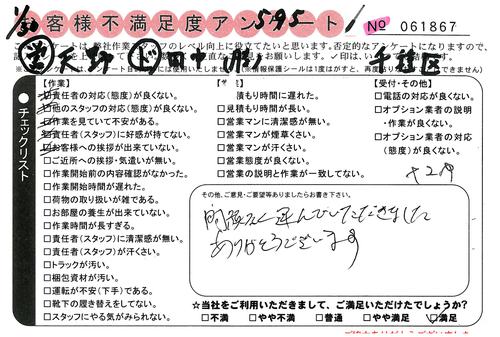 1/30
お客様不満足度アンケート
595
No 061867
アンケートは、弊社作業スタッフのレベル向上に役立てたいと思います。否定的なアンケートになりますので、
天野 田中
千種区
チェックリスト
【作業】
責任者の対応(態度)が良くない。
他のスタッフの対応(態度)が良くない。
□作業を見ていて不安がある。
責任者(スタッフ)に好感が持てない。
お客様への挨拶が出来ていない。
□ご近所への挨拶・気遣いが無い。
□作業開始前の内容確認がなかった。
□作業開始時間が遅れた。
□荷物の取り扱いが雑である。
□お部屋の養生が出来ていない。
□作業時間が長すぎる。
□責任者(スタッフ)に清潔感が無い。
□責任者(スタッフ)が汗くさい。
□トラックが汚い。
□梱包資材が汚い。
□運転が不安(下手)である。
□靴下の履き替えをしてない。
□スタッフにやる気がみられない。
積もり時間に遅れた。
□見積もり時間が長い。
□営業マンに清潔感が無い。
□営業マンが煙草くさい。
□営業マンが汗くさい。
□営業態度が良くない。
□営業の説明と作業が一致してない。
【受付・その他】
□電話の対応が良くない。
□オプション業者の説明
・作業が良くない。
□オプション業者の対応
(態度)が良くない。
その他、ご意見・ご要望等ありましたらお書き下さい。
運んでいただきました
ありがとうございます
☆当社をご利用いただきまして、ご満足いただけたでしょうか?
□不満 □やや不満 □普通 □やや満足 ☑満足